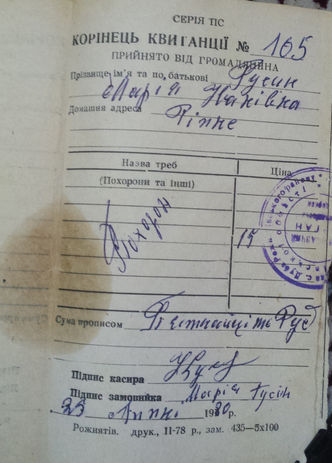 СЕРІЯ ПС
КОРІНЕЦЬ КВИТАНЦІЇ № 165
ПРИЙНЯТО ВІД ГРОМАДЯНИНА
Прізвище ім'я та по, батькові Русин
Марія
Домашня адреса Ріпне
Назва треб Ціна
(Похорони та інші)
Похорон
15
Сума прописом Пятнайціть Руб
Підпис касира
Підпис замовника Марія Русін
23 Липня 1980р.
Рожнятів. друк., 11-78 р., зам. 435—5х100